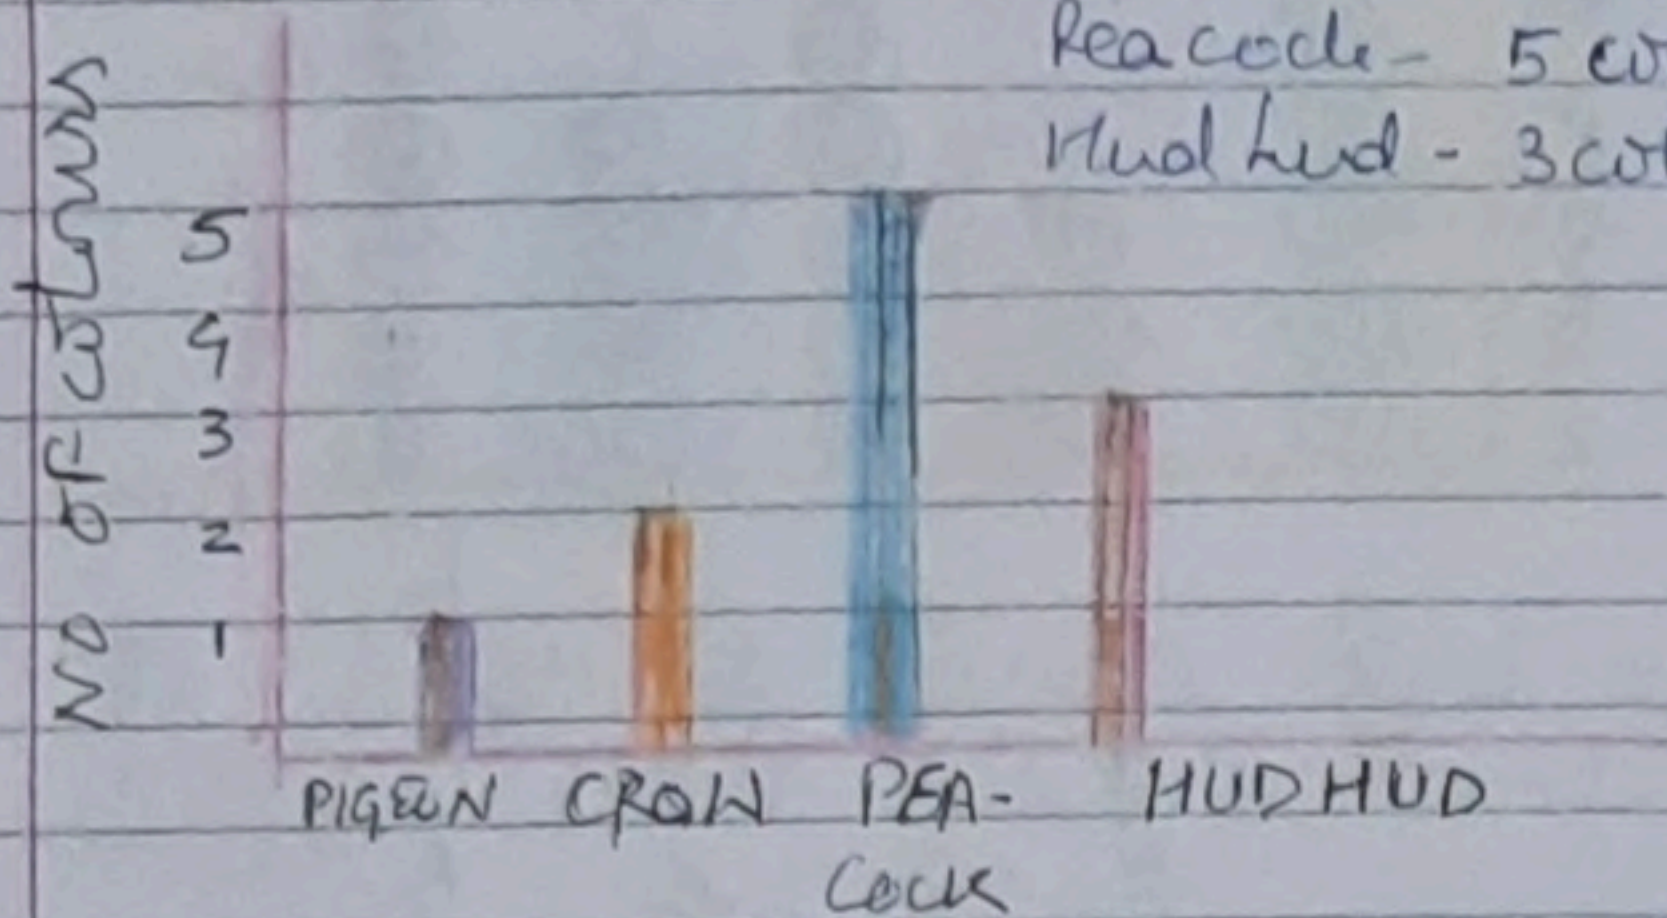 Peacock - 5 co
Hud hud - 3 col
No of colours
5
4
3
2
1
PIGEON CROW PEA- HUDHUD
Cock